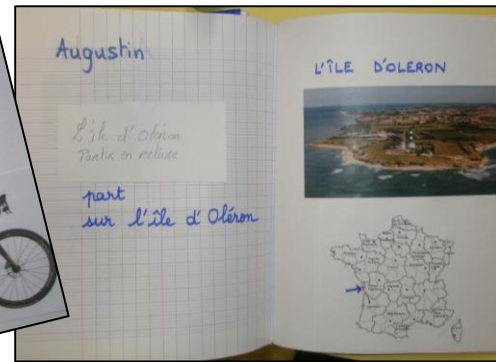 Augustin
L'île d'Oléron
part
sur l'île d'Oléron
L'ÎLE D'OLERON